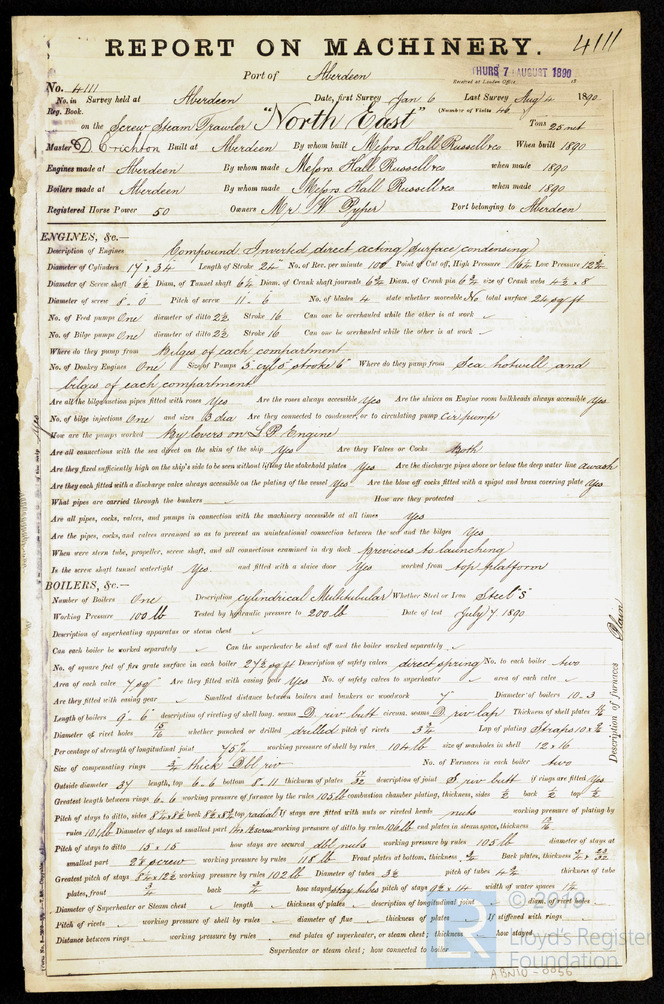 REPORT ON MACHINERY. 4111
Port of Aberdeen THURS 7 AUGUST 1890
No. 4111 Received at London Office 18
No. in Survey held at Aberdeen Date, first Survey Jan 6 Last Survey Aug 4 1890
Reg. Book. (Number of Visits 46)
on the Screw Steam Trawler "North East" Tons 25 net
Master D Crichton Built at Aberdeen By whom built Messrs Hall Russell & Co When built 1890
Engines made at Aberdeen By whom made Messrs Hall Russell & Co when made 1890
Boilers made at Aberdeen By whom made Messrs Hall Russell & Co when made 1890
Registered Horse Power 50 Owners Mr W Pyper Port belonging to Aberdeen
ENGINES, &c.—
Description of Engines Compound Inverted direct acting surface condensing
Diameter of Cylinders 17" x 34 Length of Stroke 24" No. of Rev. per minute 100 Point of Cut off, High Pressure 16¼ Low Pressure 12¾
Diameter of Screw shaft 6½ Diam. of Tunnel shaft 6¼ Diam. of Crank shaft journals 6¾ Diam. of Crank pin 6¾ size of Crank webs 4½ x 8
Diameter of screw 8-0 Pitch of screw 11-6 No. of blades 4 state whether moveable No total surface 24 sq ft
No. of Feed pumps One diameter of ditto 2½ Stroke 16 Can one be overhauled while the other is at work
No. of Bilge pumps One diameter of ditto 2½ Stroke 16 Can one be overhauled while the other is at work
Where do they pump from Bilges of each compartment
No. of Donkey Engines One Size of Pumps 3" cyl 5" stroke 6" Where do they pump from Sea hotwell and
bilges of each compartment
Are all the bilge suction pipes fitted with roses Yes Are the roses always accessible Yes Are the sluices on Engine room bulkheads always accessible Yes
No. of bilge injections One and sizes 3 dia Are they connected to condenser, or to circulating pump Cir pump
How are the pumps worked By levers on L.P. Engine
Are all connections with the sea direct on the skin of the ship Yes Are they Valves or Cocks Both
Are they fixed sufficiently high on the ship's side to be seen without lifting the stokehold plates Yes Are the discharge pipes above or below the deep water line awash
Are they each fitted with a discharge valve always accessible on the plating of the vessel Yes Are the blow off cocks fitted with a spigot and brass covering plate Yes
What pipes are carried through the bunkers How are they protected
Are all pipes, cocks, valves, and pumps in connection with the machinery accessible at all times Yes
Are the pipes, cocks, and valves arranged so as to prevent an unintentional connection between the sea and the bilges Yes
When were stern tube, propeller, screw shaft, and all connections examined in dry dock previous to launching
Is the screw shaft tunnel watertight Yes and fitted with a sluice door Yes worked from top platform
BOILERS, &c.—
Number of Boilers One Description cylindrical Multitubular Whether Steel or Iron Steel
Working Pressure 100 lb Tested by hydraulic pressure to 200 lb Date of test July 7 1890
Description of superheating apparatus or steam chest
Can each boiler be worked separately Can the superheater be shut off and the boiler worked separately
No. of square feet of fire grate surface in each boiler 27½ sq ft Description of safety valves direct spring No. to each boiler two
Area of each valve 7 sq" Are they fitted with easing gear Yes No. of safety valves to superheater area of each valve
Are they fitted with easing gear Smallest distance between boilers and bunkers or woodwork 7 Diameter of boilers 10-3
Length of boilers 9-6" description of riveting of shell long. seams D. riv butt circum. seams D. riv lap Thickness of shell plates
Diameter of rivet holes 15/16 whether punched or drilled drilled pitch of rivets 3¾ Lap of plating Straps
Per centage of strength of longitudinal joint 75% working pressure of shell by rules 104 lb size of manholes in shell 12 x 16
Size of compensating rings ¾ thick Dbl riv No. of Furnaces in each boiler two
Description of furnaces Plain
Outside diameter 37 length, top 6-6 bottom 8-11 thickness of plates description of joint S riv butt if rings are fitted Yes
Greatest length between rings 6-6 working pressure of furnace by the rules 105 lb combustion chamber plating, thickness, sides ½ back ½ top ½
Pitch of stays to ditto, sides back top radial If stays are fitted with nuts or riveted heads nuts working pressure of plating by
rules 101 lb Diameter of stays at smallest part working pressure of ditto by rules 106 lb end plates in steam space, thickness
Pitch of stays to ditto 15 x 15 how stays are secured dbl nuts working pressure by rules 105 lb diameter of stays at
smallest part 2¼ screw working pressure by rules 118 lb Front plates at bottom, thickness Back plates, thickness
Greatest pitch of stays working pressure by rules 102 lb Diameter of tubes 3½ pitch of tubes 4¾ thickness of tube
plates, front ¾ back ¾ how stayed stay tubes pitch of stays 9½ x 14 width of water spaces
Diameter of Superheater or Steam chest length thickness of plates description of longitudinal joint diam. of rivet holes
Pitch of rivets working pressure of shell by rules diameter of flue thickness of plates If stiffened with rings
Distance between rings working pressure by rules end plates of superheater, or steam chest; thickness how stayed
Superheater or steam chest; how connected to boiler
© 2019
Lloyd's Register
Foundation
LR
ABN10-0056